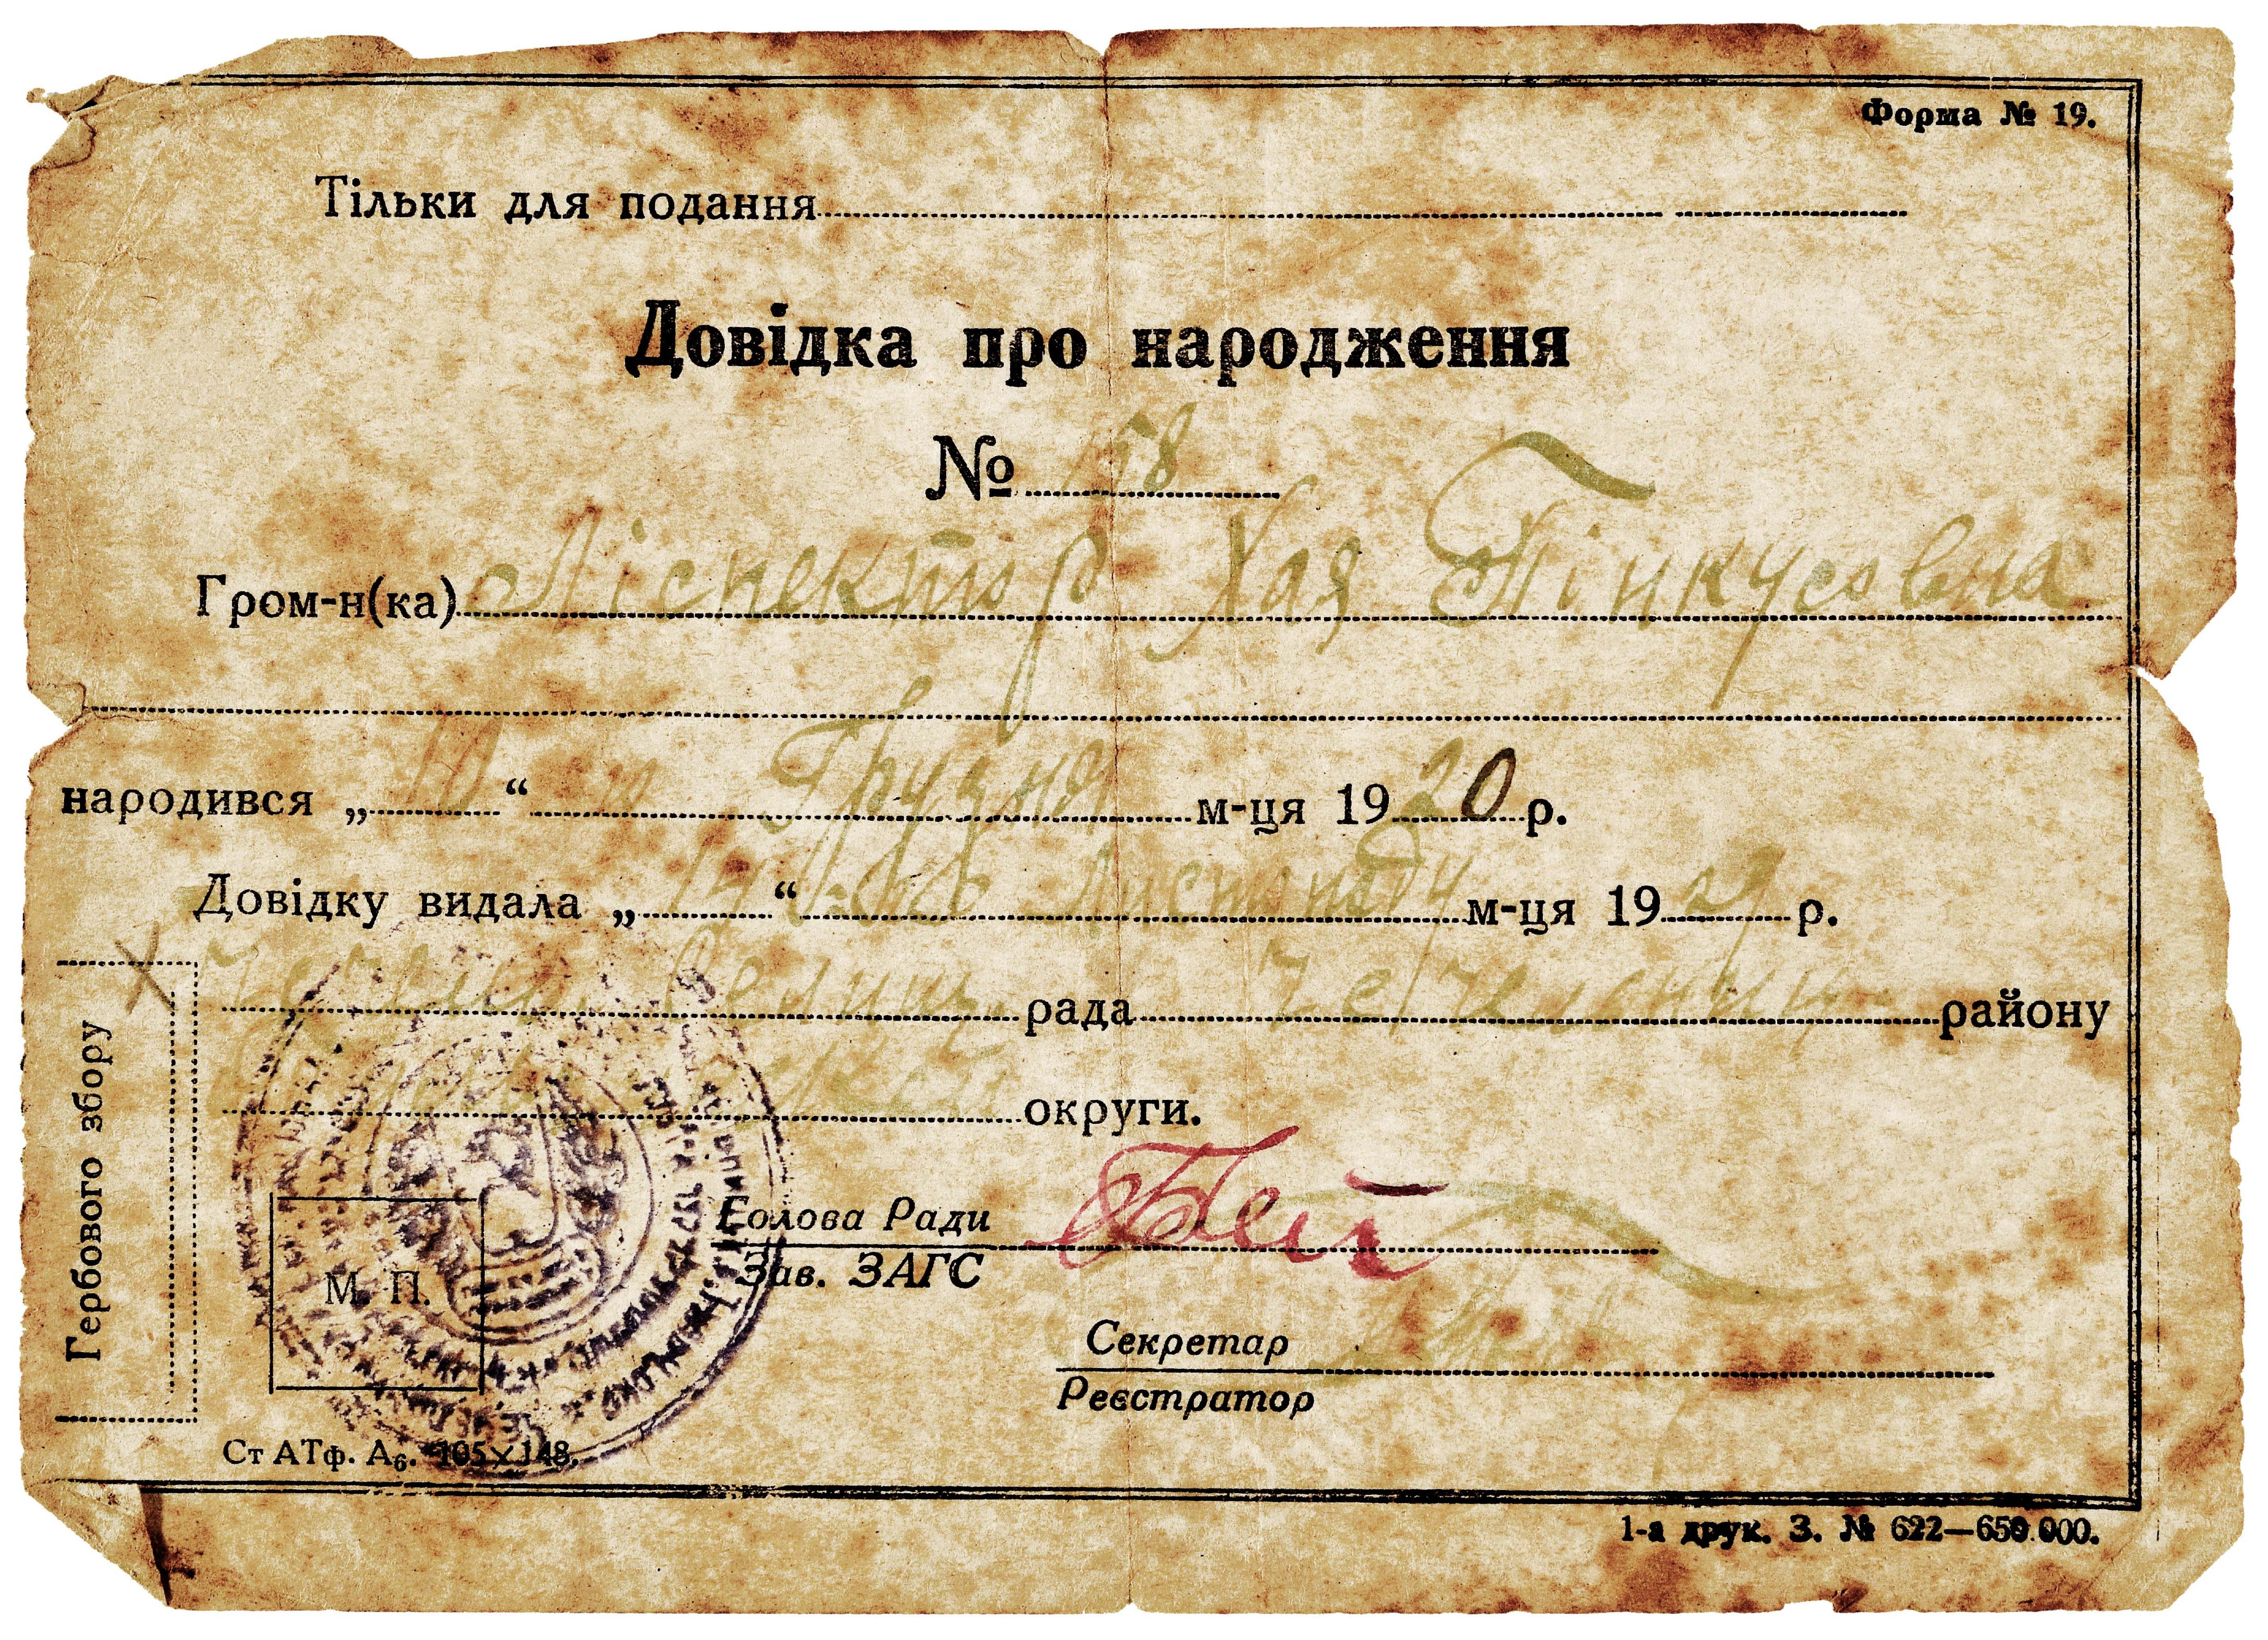 Форма № 19.
Тільки для подання
Довідка про народження
№ 158
Гром-н(ка) Ліспектор Хая Пінкусовна
народився „10“ Грудня м-ця 1920 р.
Довідку видала „14“ Листопаду м-ця 1929 р.
рада району
округи.
Гербового збору
М. П.
Голова Ради
Зав. ЗАГС
Секретар
Реєстратор
Ст АТф. А6. 105×148.
1-а друк. З. № 622—650.000.